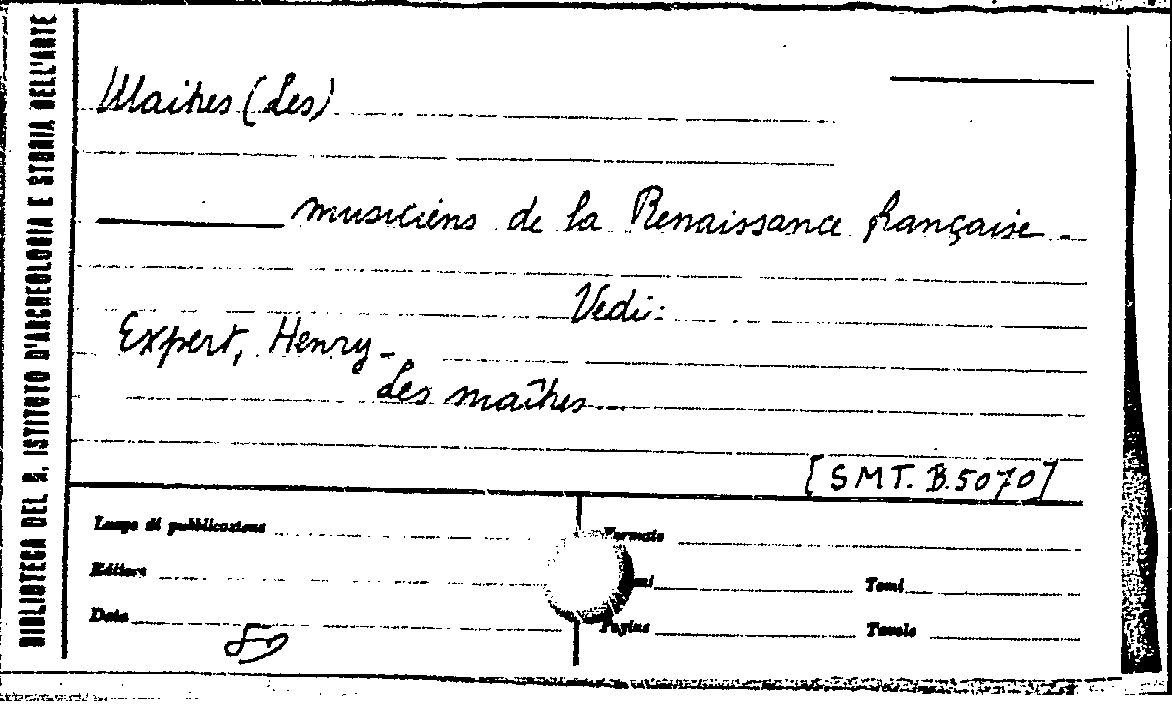 BIBLIOTECA DEL R. ISTITUTO D'ARCHEOLOGIA E STORIA DELL'ARTE
Maîtres (Les)
musiciens de la Renaissance française.
Vedi:
Expert, Henry.
Les maîtres...
[SMT. B.5070]
Luogo di pubblicazione
Formato
Editore
Tomi
Data
Pagine
Tavole